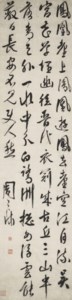 鳳凰臺上鳳凰遊鳳去臺空江自流吳
宮花草埋幽徑晉代衣冠成古丘三山半
落青天外一水中分白鷺洲總為浮雲能
蔽日長安不見使人愁